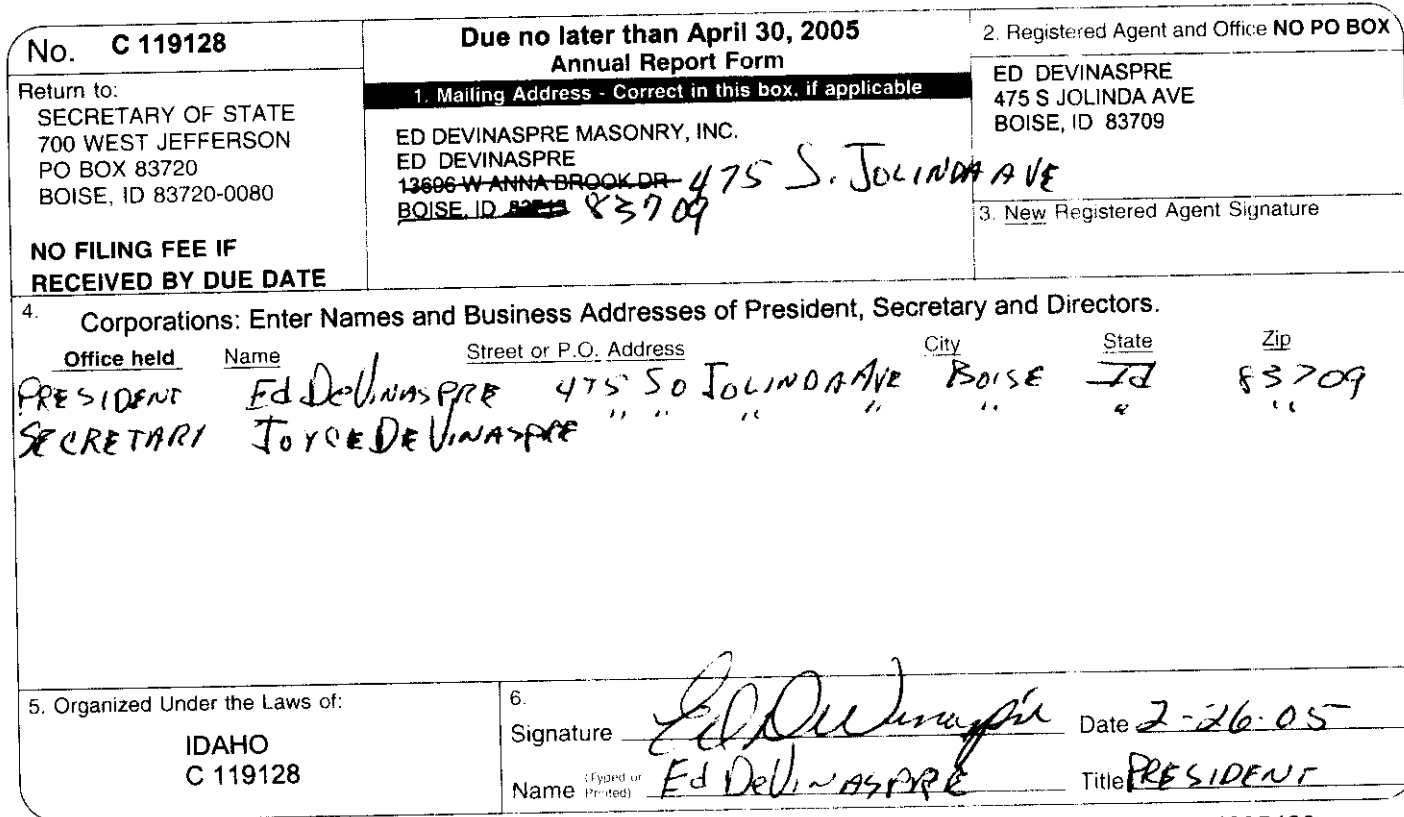 No. C 119128
Return to:
SECRETARY OF STATE
700 WEST JEFFERSON
PO BOX 83720
BOISE, ID 83720-0080
NO FILING FEE IF
RECEIVED BY DUE DATE
Due no later than April 30, 2005
Annual Report Form
1. Mailing Address - Correct in this box, if applicable
ED DEVINASPRE MASONRY, INC.
ED DEVINASPRE
13606 W ANNA BROOK DR 475 S. JOLINDA AVE
BOISE, ID 83709
2. Registered Agent and Office NO PO BOX
ED DEVINASPRE
475 S JOLINDA AVE
BOISE, ID 83709
3. New Registered Agent Signature
4. Corporations: Enter Names and Business Addresses of President, Secretary and Directors.
Office held Name Street or P.O. Address City State Zip
PRESIDENT Ed DeVINASPRE 475 So JOLINDA AVE BOISE Id 83709
SECRETARY JOYCE DE VINASPRE " " " " " " "
5. Organized Under the Laws of:
IDAHO
C 119128
6.
Signature Ed DeVinaspre Date 2-26-05
Name (Typed or Printed) Ed DeVINASPRE Title PRESIDENT